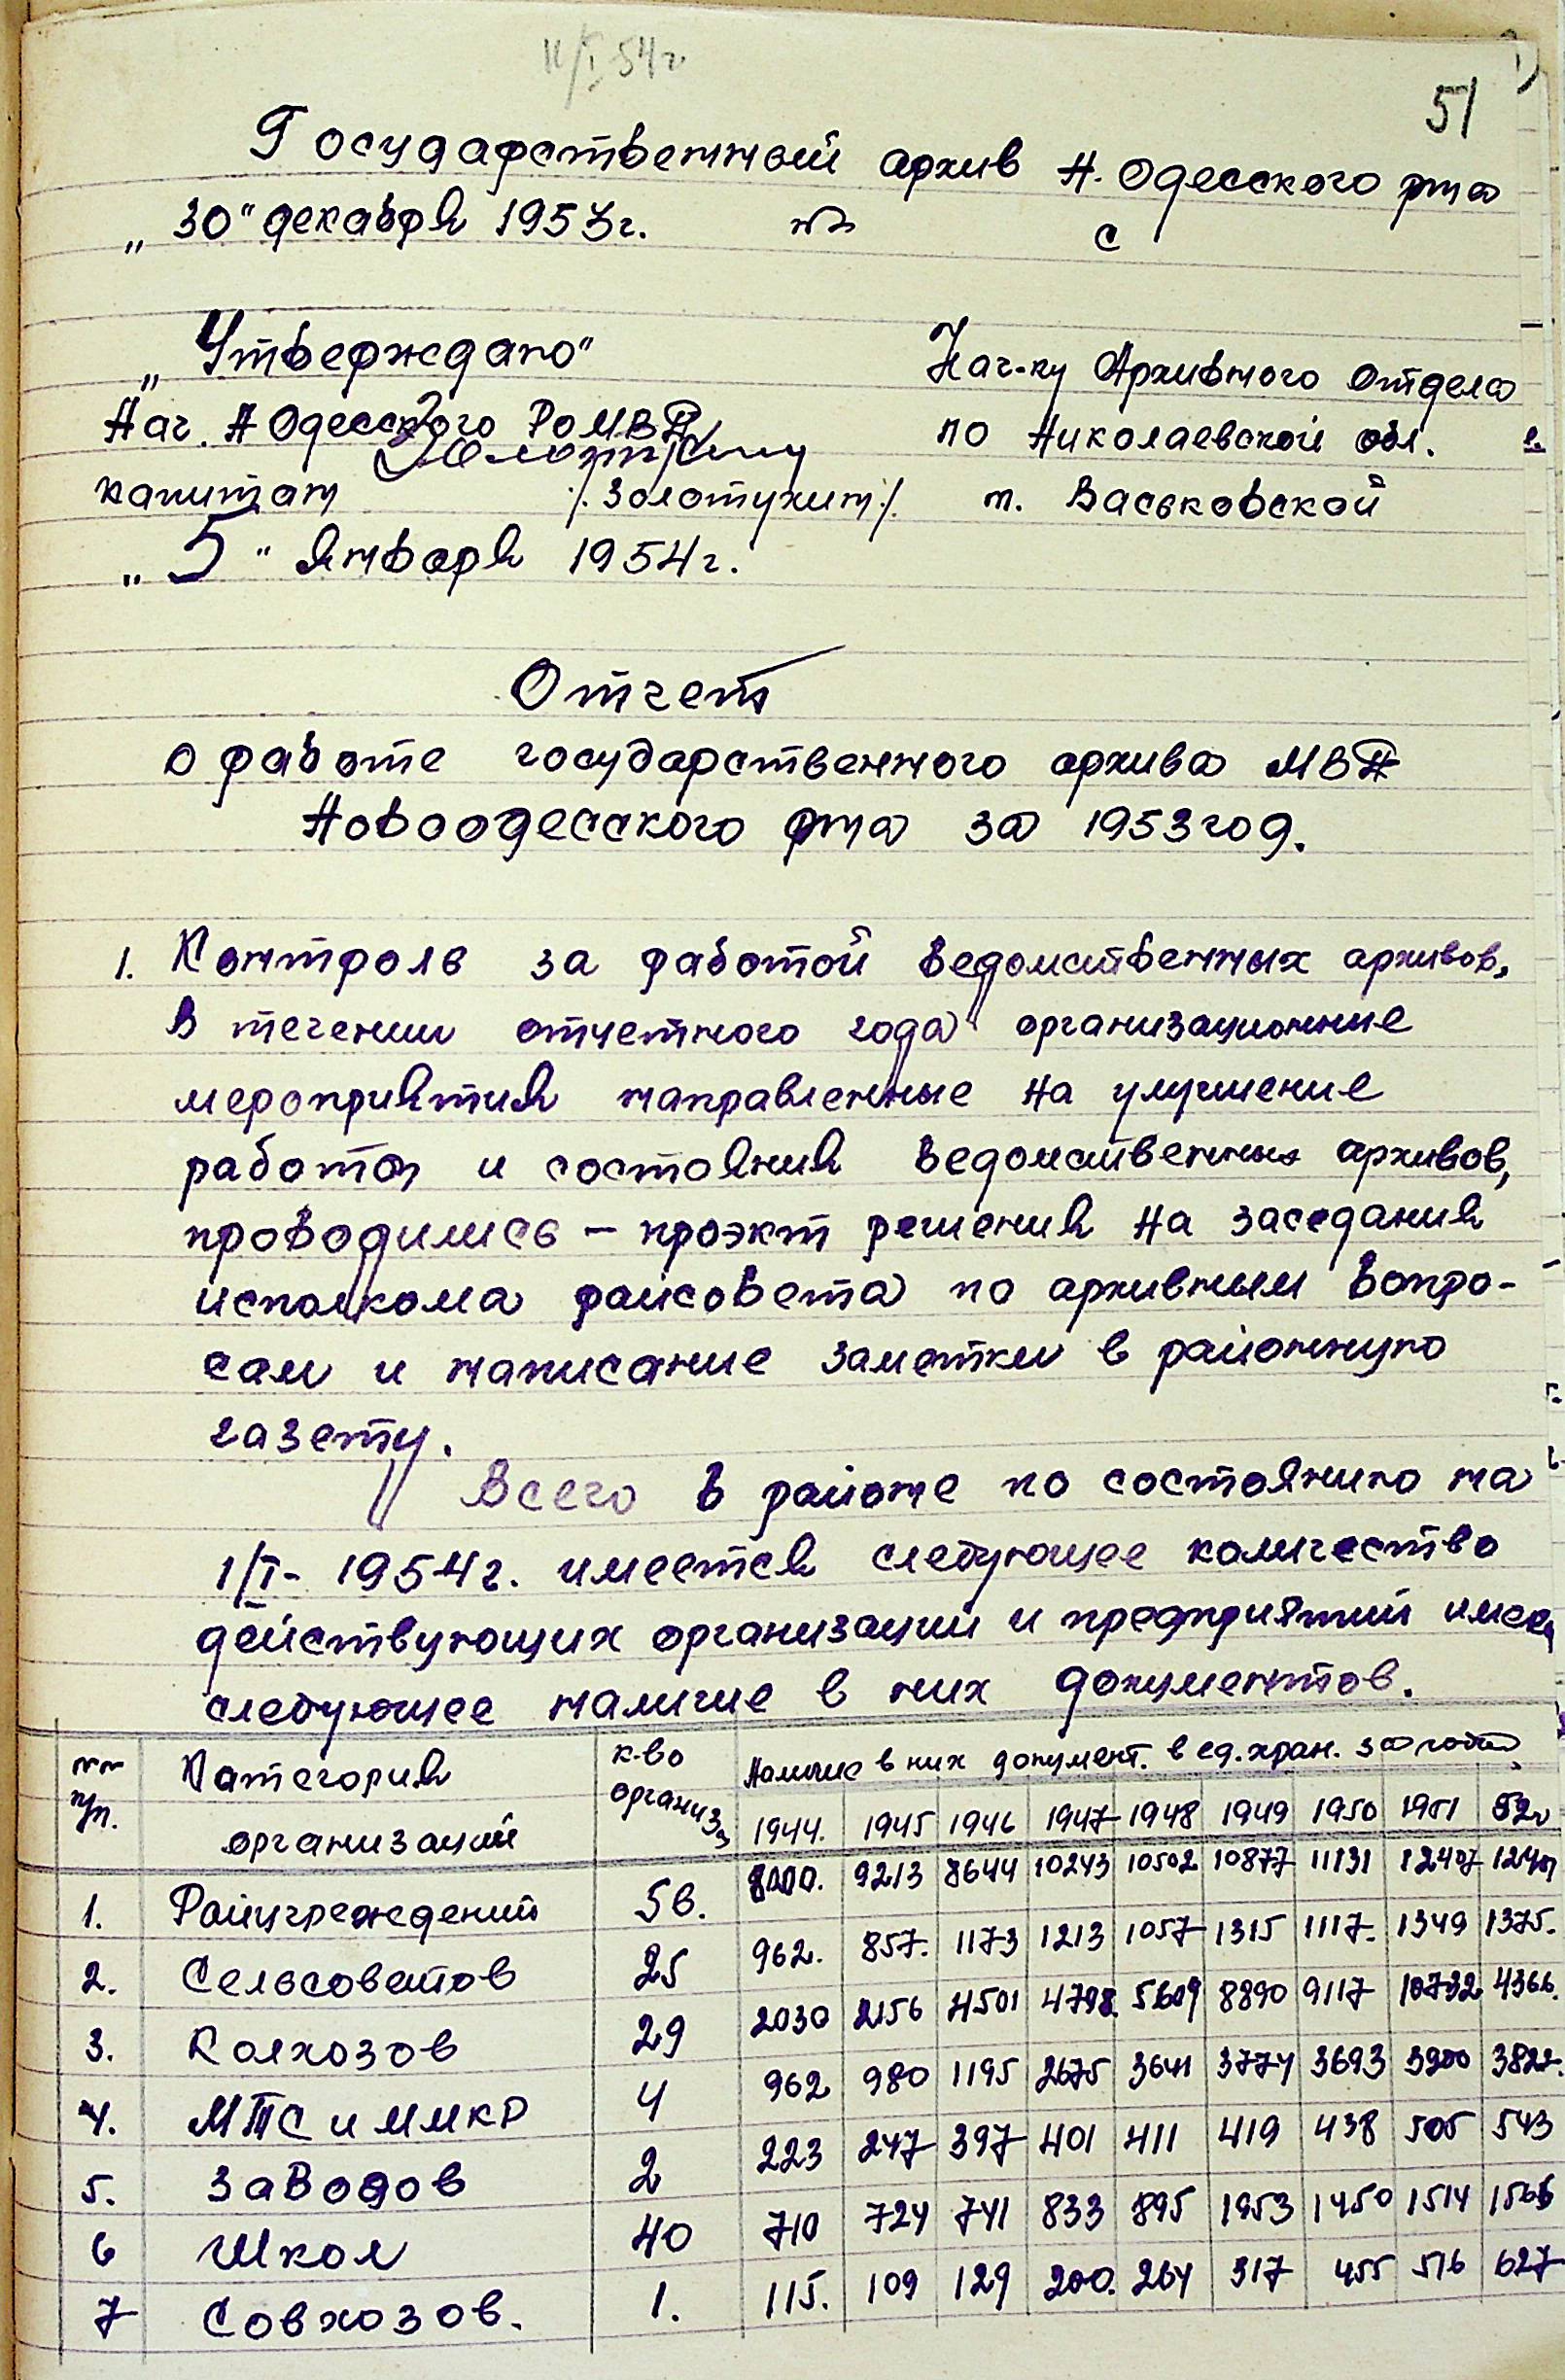 11/I 54г.
51
Государственный архив Н. Одесского р-на
„30“ декабря 1953г. № с
„Утверждаю“
Нач. Н Одесского РоМВД
капитан /.Золотухин/.
„5“ января 1954г.
Нач-ку Архивного отдела
по Николаевской обл.
т. Васьковской
Отчет
о работе государственного архива МВД
Новоодесского р-на за 1953 год.
1. Контроль за работой ведомственных архивов.
В течении отчетного года организационные
мероприятия направленные на улучшение
работы и состояния ведомственных архивов,
проводились – проэкт решения на заседания
исполкома райсовета по архивным вопро-
сам и написание заметки в районную
газету.
Всего в районе по состоянию на
1/I- 1954г. имеется следующее количество
действующих организаций и предприятий имея
следующее наличие в них документов.
№№ п/п. Категория организаций к-во организ. Наличие в них документ. в ед. хран. за годы
1944. 1945 1946 1947 1948 1949 1950 1951 52г
1. Райучреждений 56. 8000. 9213 8644 10243 10502 10877 11131 12407
2. Сельсоветов 25 962. 857. 1173 1213 1057 1315 1117. 1349 1375.
3. Колхозов 29 2030 2156 4501 4798. 5609 8890 9117 10732 4366.
4. МТС и ММКР 4 962 980 1195 2675 3641 3774 3693 3900 3822.
5. Заводов 2 223 247 397 401 411 419 438 505 543
6 Школ 40 710 724 741 833 895 1953 1450 1514 1566
7 Совхозов. 1. 115. 109 129 200. 264 317 455 516 627